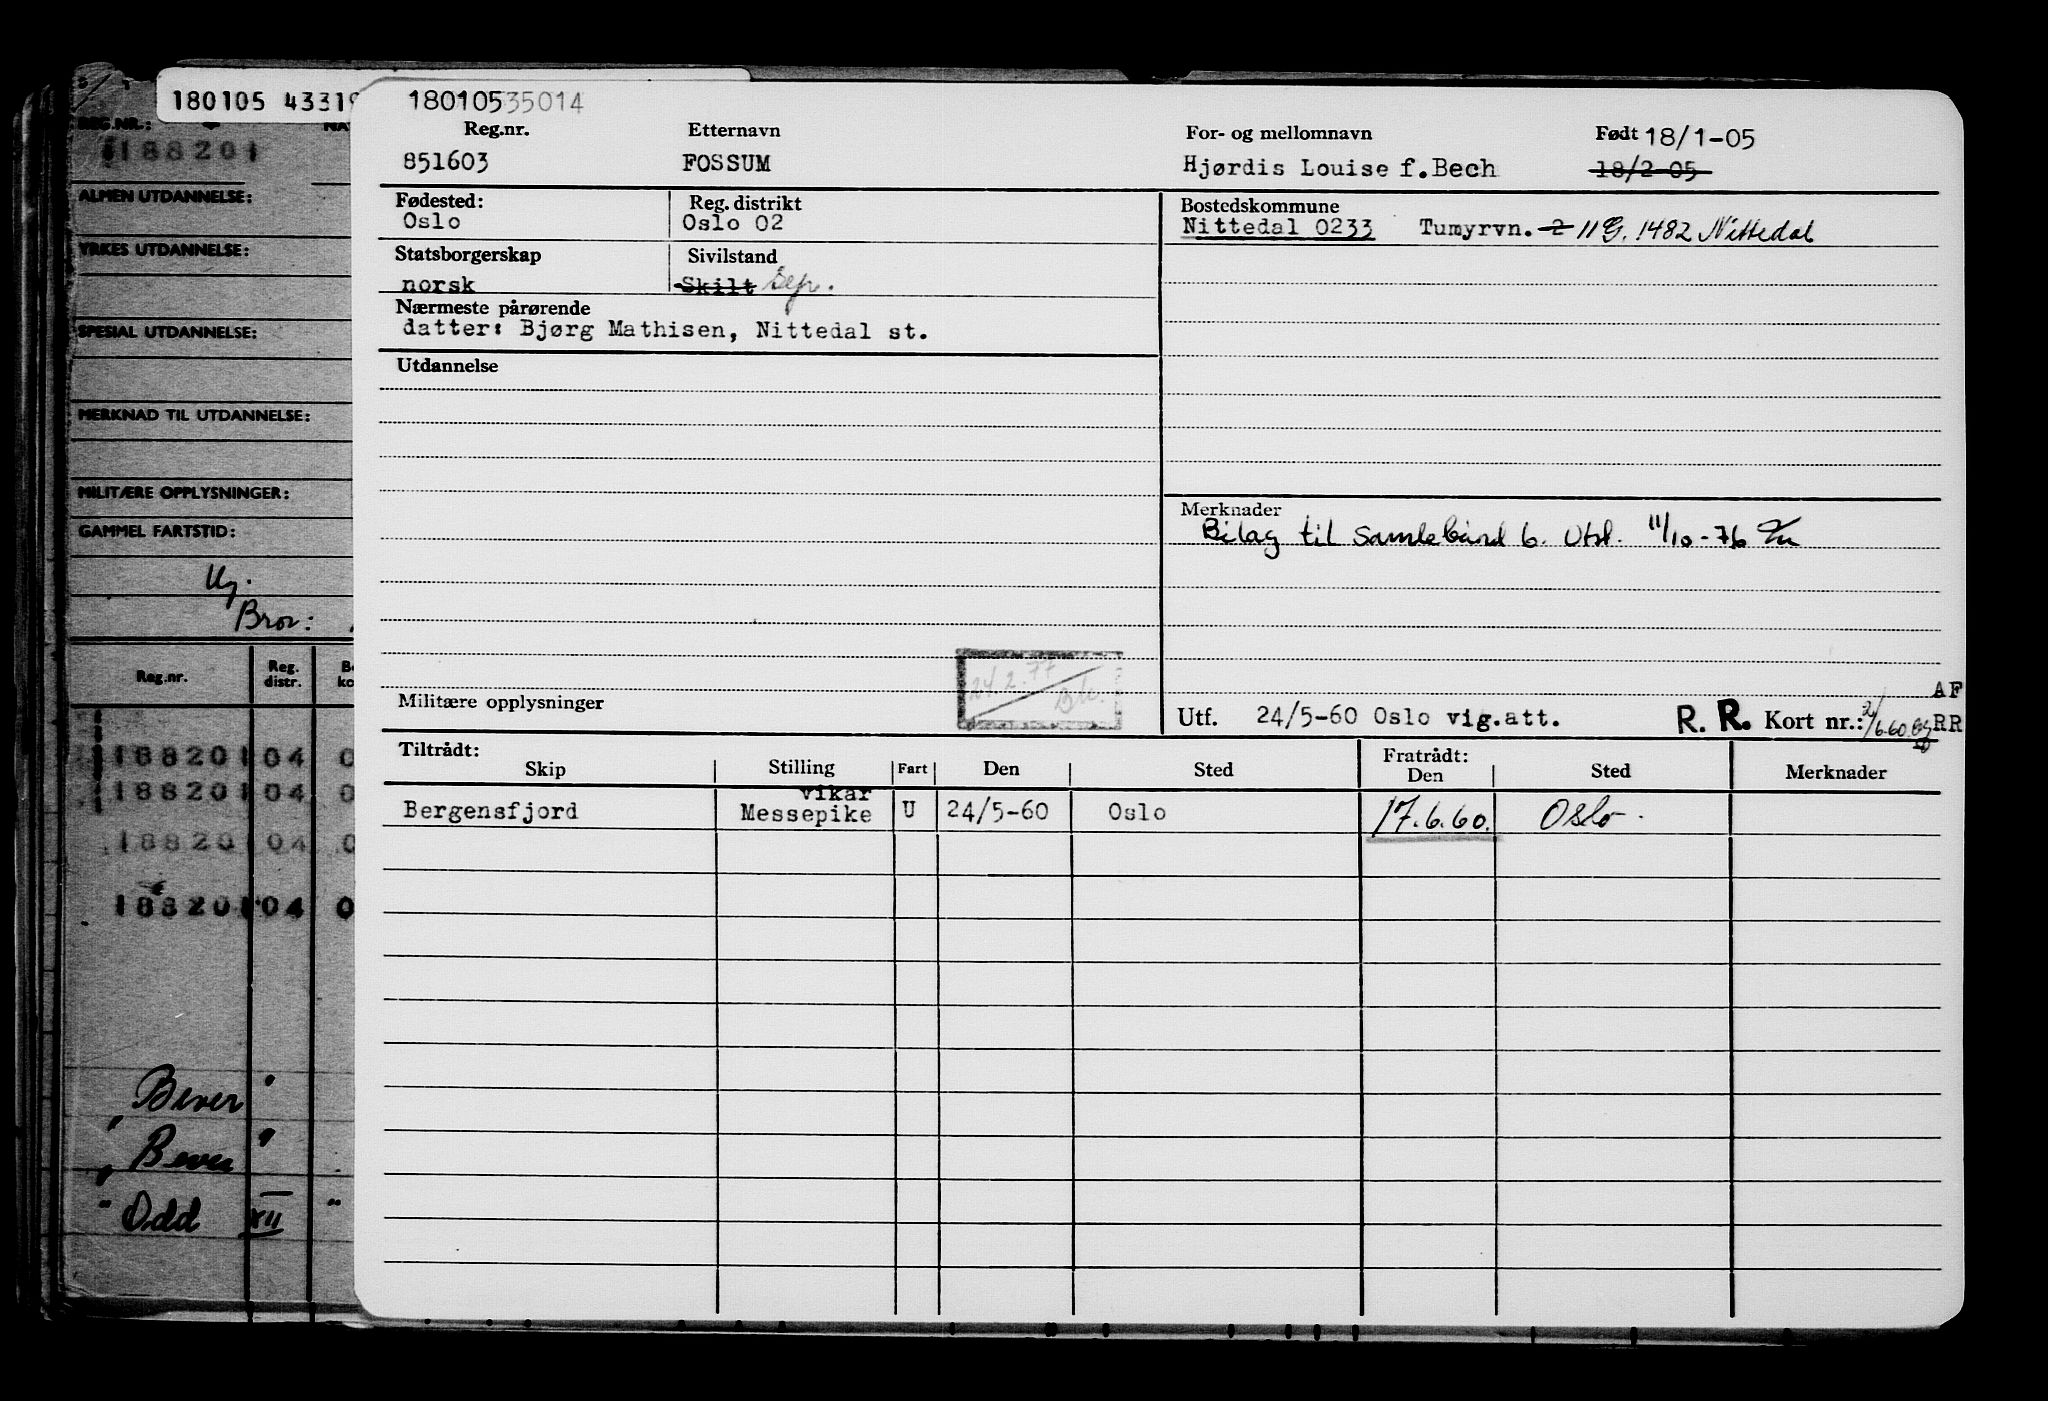 180105 4331
REG.NR.:
188201
ALMEN UTDANNELSE:
YRKES UTDANNELSE:
SPESIAL UTDANNELSE:
MERKNAD TIL UTDANNELSE:
MILITÆRE OPPLYSNINGER:
GAMMEL FARTSTID:
Bror:
Reg.nr. Reg. distr.
188201 04 0
188201 04 0
18820 04 0
188201 04 0
" Bever "
" Bever "
" Odd XII "
18010535014
Reg.nr. Etternavn For- og mellomnavn Født 18/1-05
851603 FOSSUM Hjørdis Louise f.Bech 18/2-05
Fødested: Reg. distrikt Bostedskommune
Oslo Oslo 02 Nittedal 0233 Tumyrvn. 2 11G, 1482 Nittedal
Statsborgerskap Sivilstand
norsk Skilt Sep.
Nærmeste pårørende
datter: Bjørg Mathisen, Nittedal st.
Utdannelse
Merknader
Bilag til Samlebånd 6. Utst. 11/10-76
24/2.77
Militære opplysninger
Utf. 24/5-60 Oslo vig.att. R. R. Kort nr.:
AF
RR
Tiltrådt: Fratrådt:
Skip Stilling Fart Den Sted Den Sted Merknader
vikar
Bergensfjord Messepike U 24/5-60 Oslo 17.6.60. Oslo.